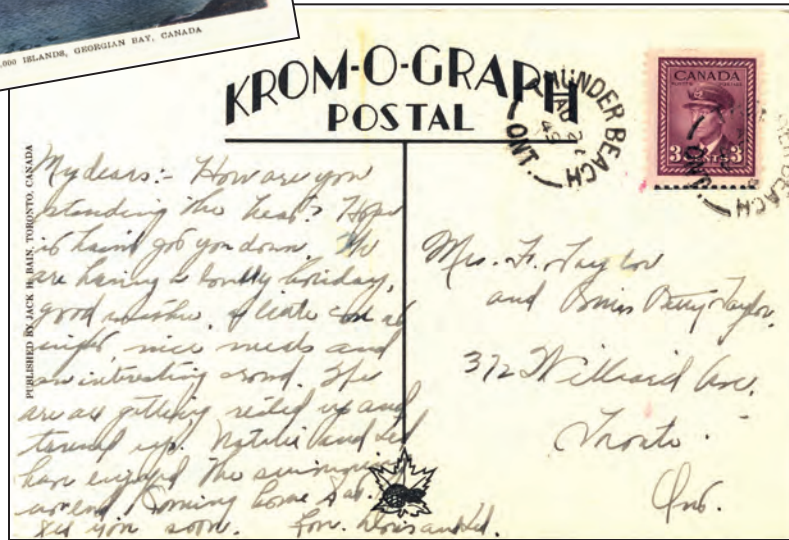 ,000 ISLANDS, GEORGIAN BAY, CANADA
KROM-O-GRAPH
POSTAL
UNDER BEACH
ONT.
49
CANADA
3 CENTS 3
BEACH
ONT.
PUBLISHED BY JACK H. BAIN, TORONTO, CANADA
My dears:- How are you
standing the heat? Hope
it hain't got you down. We
are having a lovely holiday,
good weather, a little cool at
night, nice meals and
an interesting crowd. We
are all getting rested up and
tanned up. Natalie and Ted
have enjoyed the swimming
coming home Sat.
See you soon. Love. Doris and Ted.
Mrs. F. Taylor
and Miss Betty Taylor,
372 Willard Ave.
Toronto.
Ont.